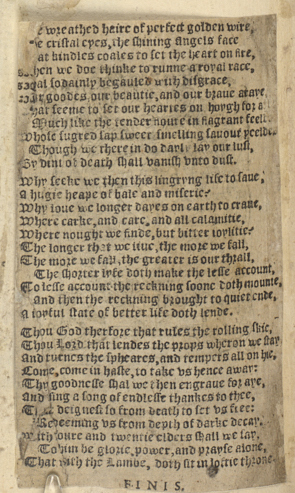 wreathed heire of perfect golden wire,
cristal eyes, the shining Angels face
at kindles coales to set the heart on fire,
hen we doe thinke to runne a royal race,
sodainly begauled with disgrace,
goodes, our beautie, and our braue araye,
hat seeme to set our heartes on
Much like the tender floure in fragrant
whose sugred sap sweet smelling sauour
Though we therein do dayly lay our lust,
By dint of death shall vanish vnto dust.
Why seeke we then this lingryng life to saue,
A hugie heape of bale and miserie?
Why loue we longer dayes on earth to craue,
Where carke, and care, and all calamitie,
Where nought we finde, but bitter ioylitie?
The longer that we liue, the more we fall,
The more we fall, the greater is our thrall,
The shorter lyfe doth make the lesse account,
To lesse account the reckning soone doth mounte,
And then the reckning brought to quiet ende,
A ioyful state of better life doth lende.
Thou God therfore that rules the rolling skie,
Thou Lord that lendes the props wheron we stay
And turnes the spheares, and tempers all on hie,
Come, come in haste, to take vs hence away:
Thy goodnesse shal we then engraue for aye,
And sing a song of endlesse thankes to thee,
deignest so from death to set vs free:
Redeeming vs from depth of darke decay,
With foure and twentie elders shall we say,
To him be glorie, power, and prayse alone,
That with the Lambe, doth sit in loftie throne
FINIS.